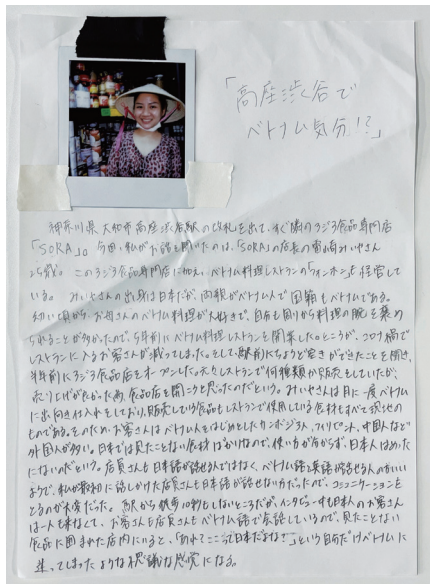 「高座渋谷で
ベトナム気分!?」
神奈川県大和市高座渋谷駅の改札を出て、すぐ隣のアジア食品専門店
「SORA」。今回、私がお話を聞いたのは、「SORA」の店長の宮崎みいやさん
25歳。このアジア食品専門店に加え、ベトナム料理レストランの「フォンホン」も経営して
いる。みいやさんの出身は日本だが、両親がベトナム人で国籍もベトナムである。
幼い頃から、お母さんのベトナム料理が大好きで、自身も周りから料理の腕を褒め
られることが多かったので、5年前にベトナム料理レストランを開業した。ところが、コロナ禍で
レストランに入るお客さんが減ってしまった。そして、駅前にちょうど空きができたことを聞き、
半年前にアジア食品店をオープンした。元々レストランで何種類か販売をしていたが、
売り上げが良かった為、食品店を開こうと思ったのだという。みいやさんは月に一度ベトナム
に出向き仕入れをしており、販売している食品もレストランで使用している食材もすべて現地の
ものである。そのため、お客さんはベトナム人をはじめとしたカンボジア人、フィリピン人、中国人など
外国人が多い。日本では見たことない食材ばかりなので、使い方が分からず、日本人はめった
にないのだという。店員さんも日本語が話せる人ではなく、ベトナム語と英語が話せる人のがいい
ようで、私が最初に話しかけた店員さんも日本語が話せない方だったので、コミュニケーションを
とるのが大変だった。駅から徒歩10秒もしないところだが、インタビュー中も日本人のお客さん
は一人も来なくて、お客さんも店員さんもベトナム語で会話しているので、見たことない
食品に囲まれた店内にいると、「あれ?ここって日本だよな?」という自分だけベトナムに
迷ってしまったような不思議な感覚になる。